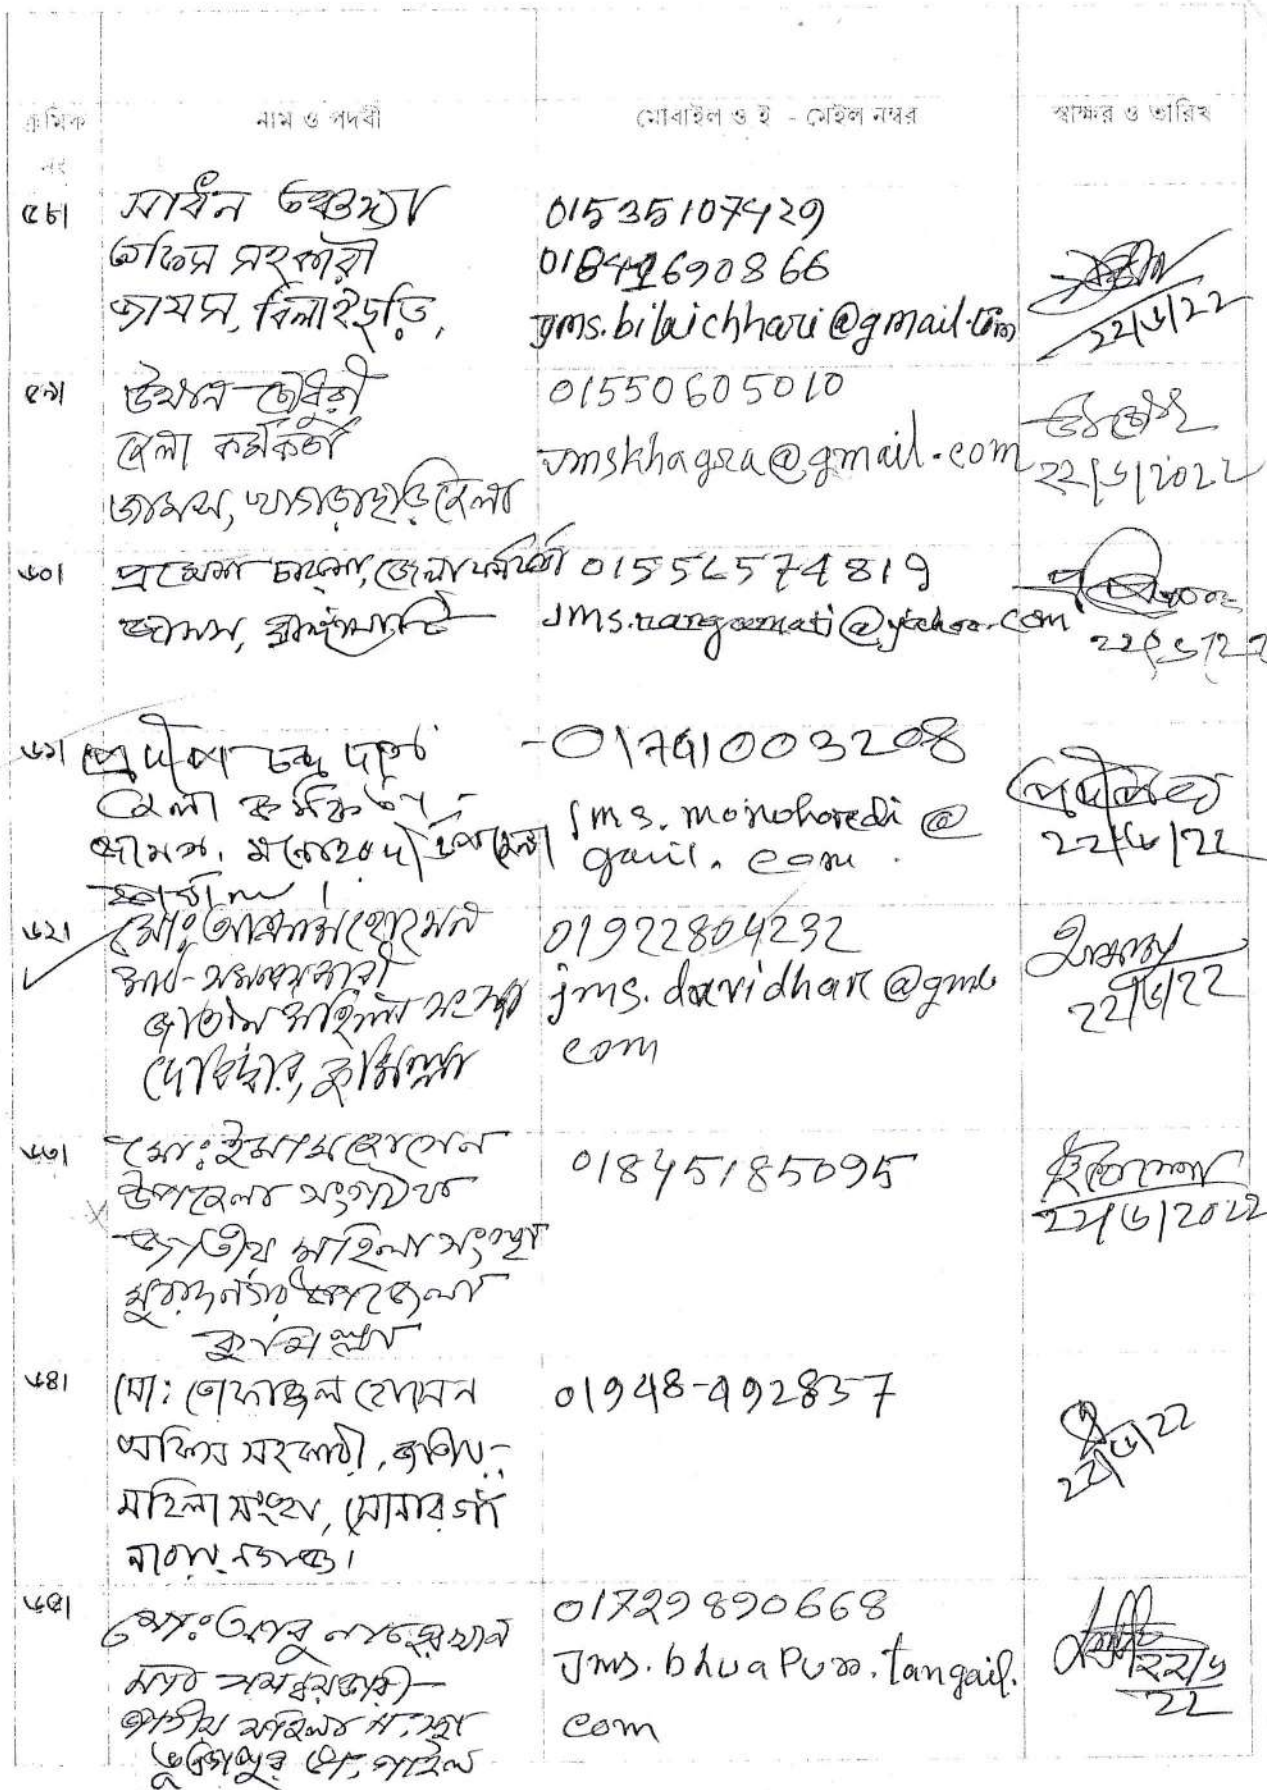 ক্রমিক নং
নাম ও পদবী
মোবাইল ও ই - মেইল নম্বর
স্বাক্ষর ও তারিখ
৫৮।
সাধন তঞ্চঙ্গ্যা
অফিস সহকারী
জামস, বিলাইছড়ি,
01535107429
01841690866
jms.bilaichhari@gmail.com
22/6/22
৫৯।
উথান চৌধুরী
জেলা কর্মকর্তা
জামস, খাগড়াছড়ি জেলা
01550605010
Jmskhagra@gmail.com
22/6/2022
৬০।
জেলা কর্মকর্তা
জামস, রাঙ্গামাটি
01556574819
Jms.rangamati@yahoo.com
22/6/22
৬১।
প্রদীপ চন্দ্র দাস
জেলা কর্মকর্তা
জামস, মনোহরদী উপজেলা
-01741003208
Jms.monohoredi@
gmil.com
22/6/22
৬২।
মোঃ হোসেন
মাঠ-সমন্বয়কারী
জাতীয় মহিলা সংস্থা
দেবিদ্বার, কুমিল্লা
01922804232
jms.davidhar@gml
com
22/6/22
৬৩।
মোঃ ইমাম হোসেন
উপজেলা সংগঠক
জাতীয় মহিলা সংস্থা
মুরাদনগর উপজেলা
কুমিল্লা
01845185095
22/6/2022
৬৪।
মো: তোফাজ্জল হোসেন
অফিস সহকারী, জাতীয়
মহিলা সংস্থা, সোনারগাঁ
নারায়ণগঞ্জ।
01948-492837
22/6/22
৬৫।
মোঃ আবু নাছের খান
মাঠ সমন্বয়কারী
জাতীয় মহিলা সংস্থা
ভূঞাপুর টাংগাইল
01729890668
Jms.bhuapur.tangail.
com
২২/৬
22